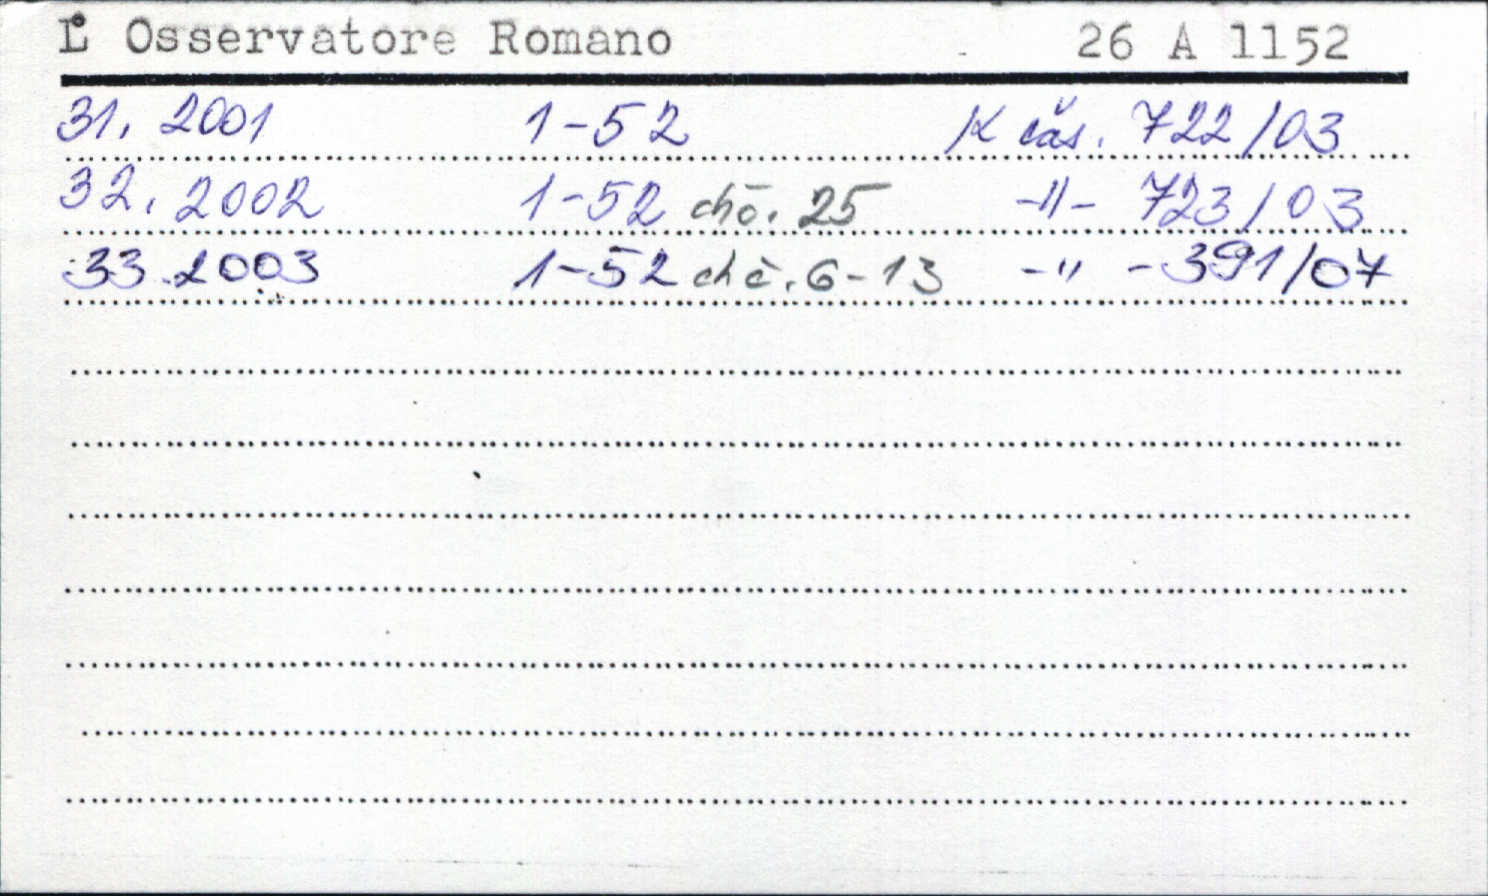 L° Osservatore Romano 26 A 1152
31. 2001 1-52 K čas. 722/03
32. 2002 1-52 chč. 25 -"- 723/03
33. 2003 1-52 chč. 6-13 -"- 391/07